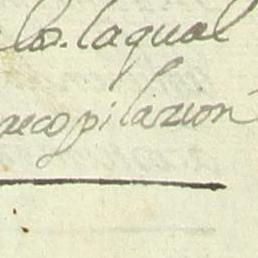 lo. laqual
recopilazion